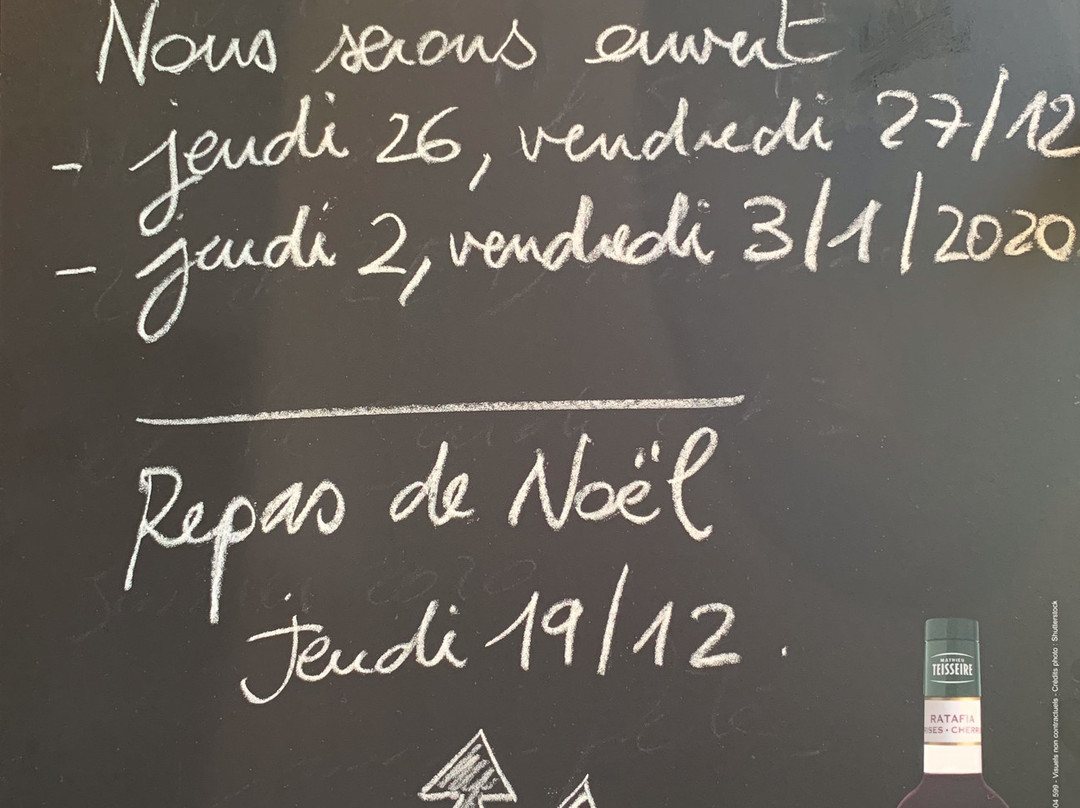 Nous serons ouvert
- jeudi 26, vendredi 27/12
- jeudi 2, vendredi 3/1/2020
Repas de Noël
jeudi 19/12.
MATHIEU
TEISSEIRE
RATAFIA
ISES • CHERR
04 599 - Visuels non contractuels - Crédits photo : Shutterstock